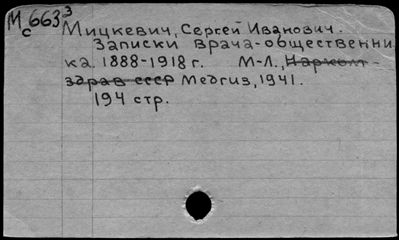 М 663 з
с
Мицкевич, Сергей Иванович.
Записки врача-общественни
ка 1888-1918 г. М-Л., Наркомт-
здрав ссср Медгиз, 1941.
194 стр.